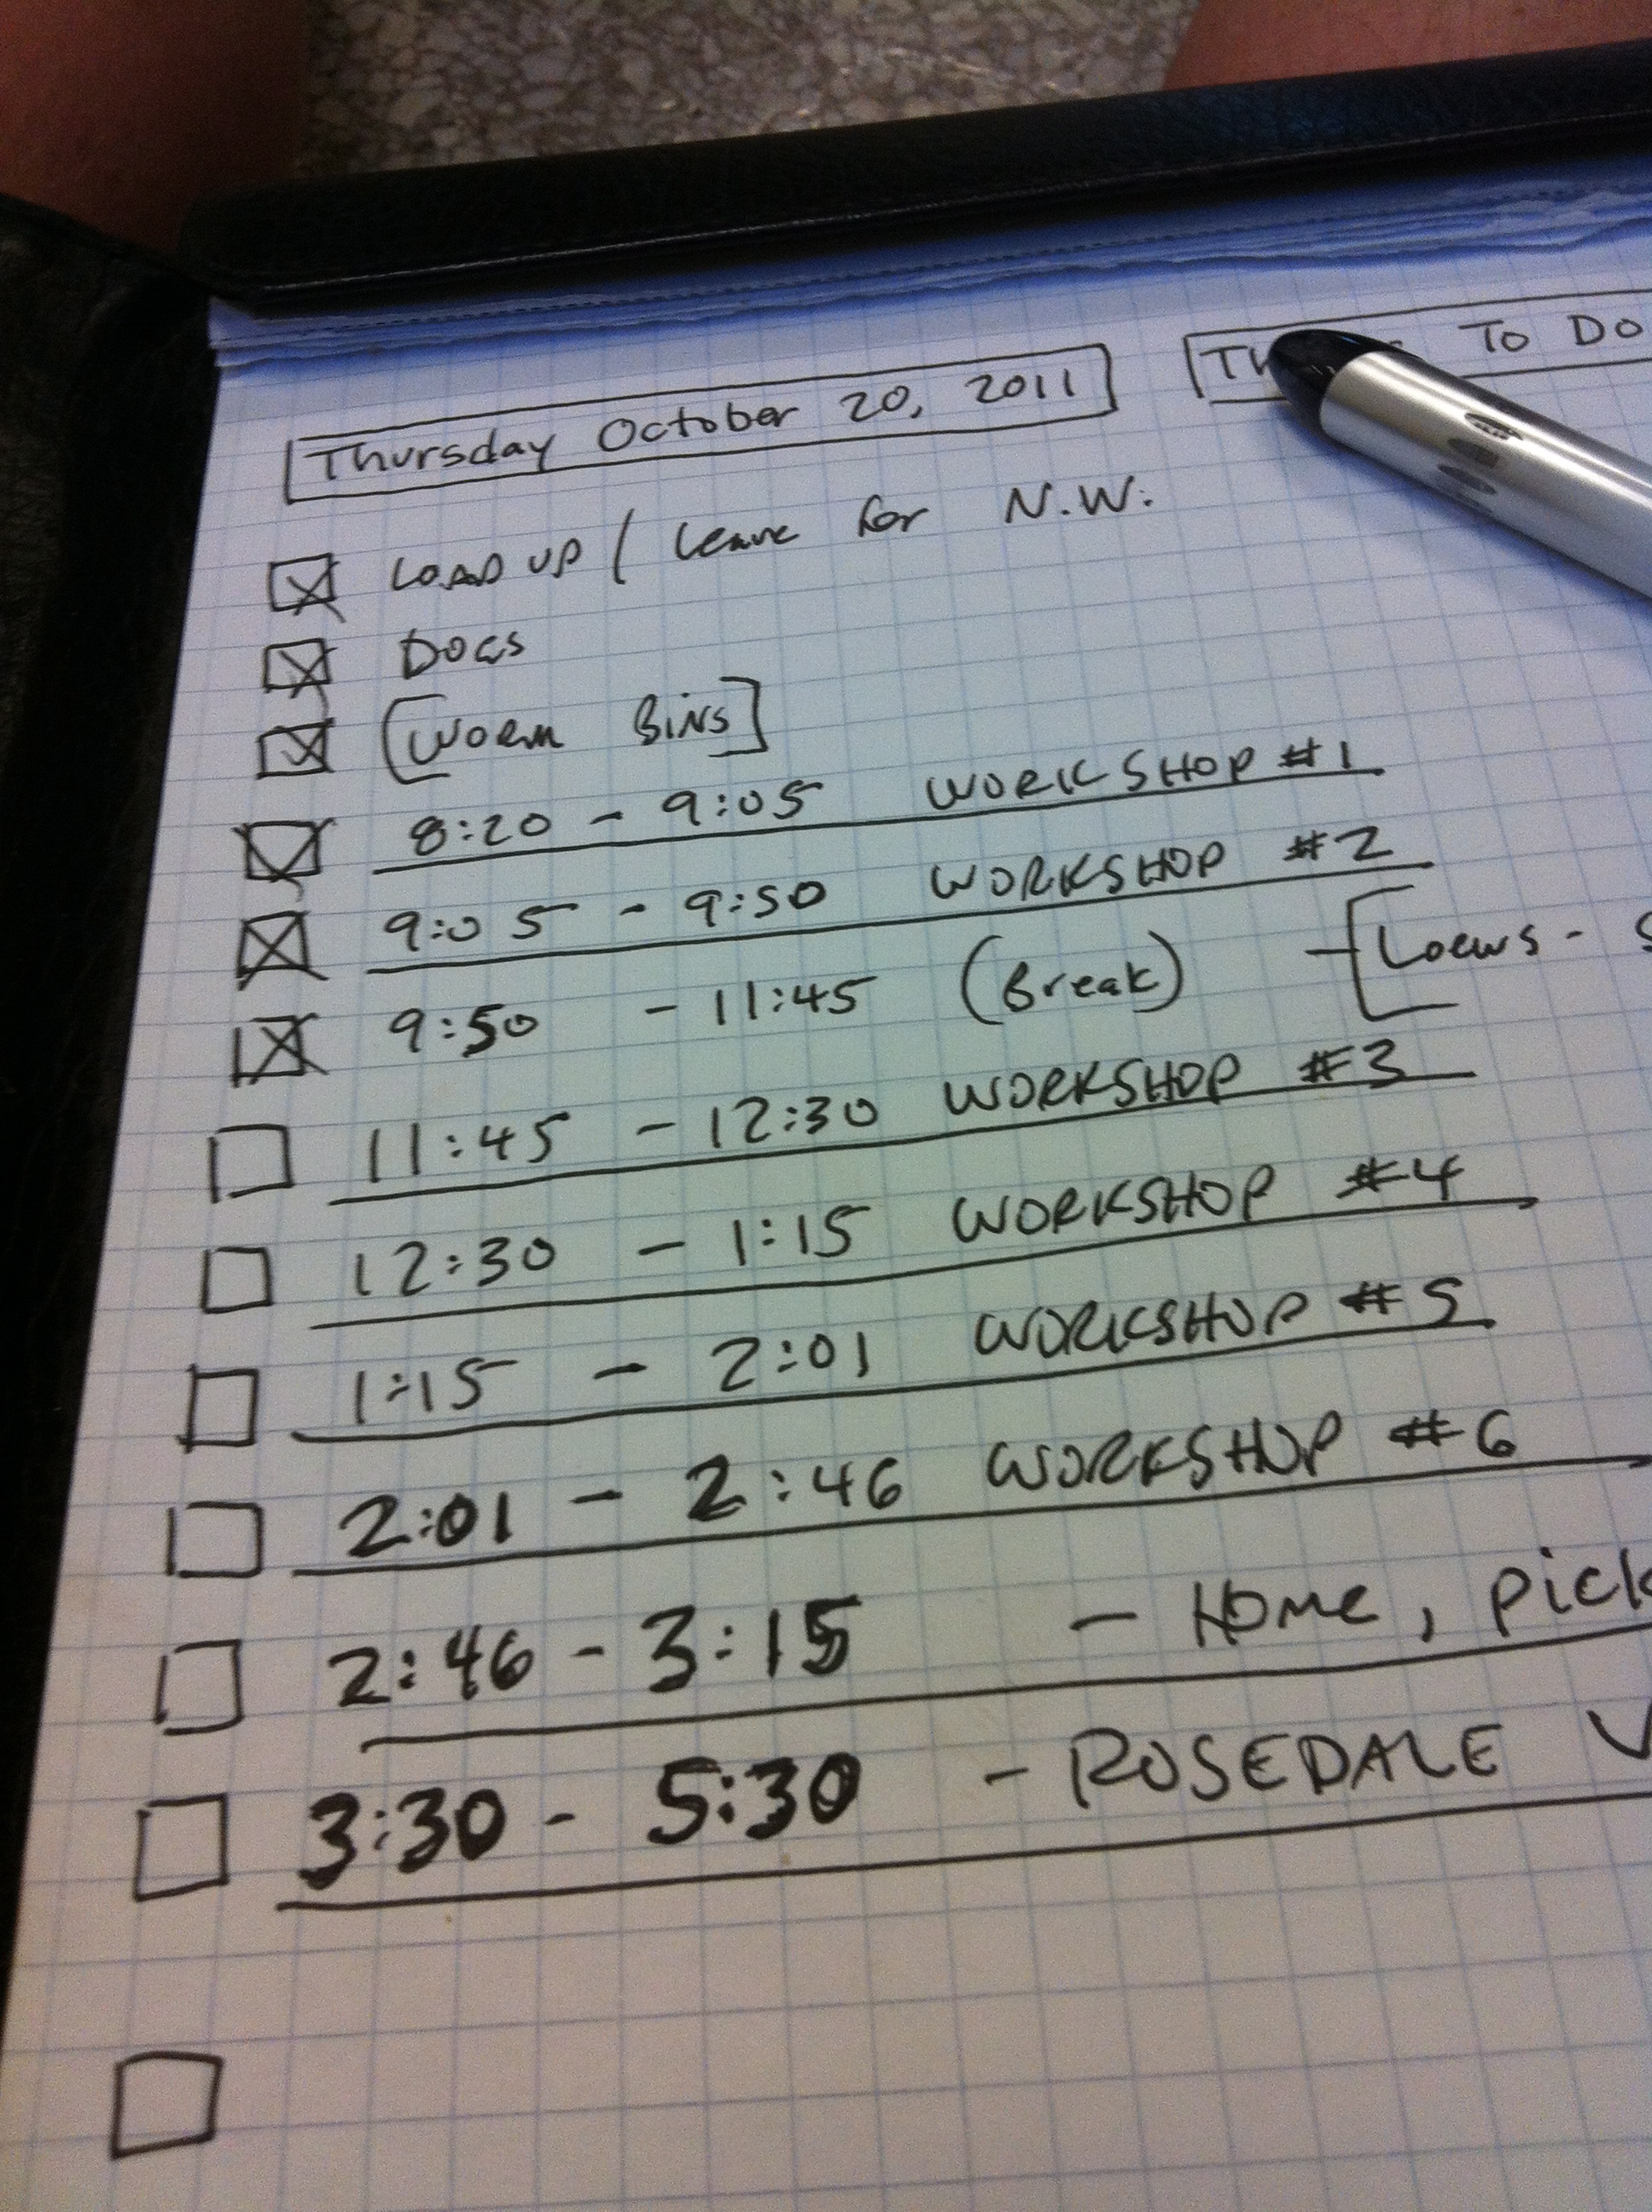 Thursday October 20, 2011
To Do
LOAD UP / Leave for N.W.
DOGS
[WORM BINS]
8:20 - 9:05 WORKSHOP #1
9:05 - 9:50 WORKSHOP #2
9:50 - 11:45 (Break) [Loews -
11:45 - 12:30 WORKSHOP #3
12:30 - 1:15 WORKSHOP #4
1:15 - 2:01 WORKSHOP #5
2:01 - 2:46 WORKSHOP #6
2:46 - 3:15 - Home, pick
3:30 - 5:30 - ROSEDALE